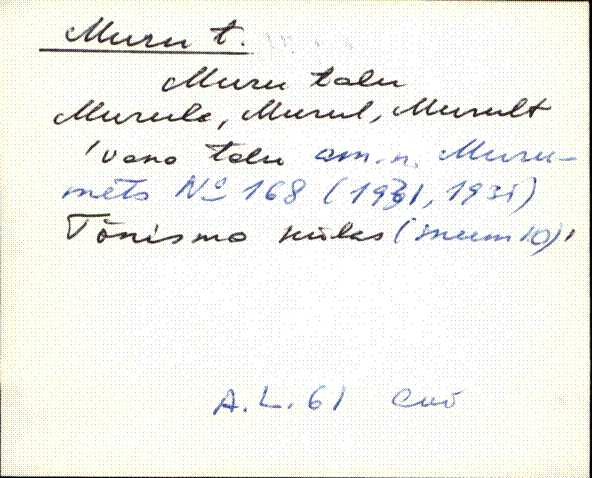 Muru t.
Muru talu
Murule, Murul, Murult
'vana talu am.n. Muru-
mets No 168 (1931, 1935)
Tõnismo külas (mum 10)'
A.L. 61